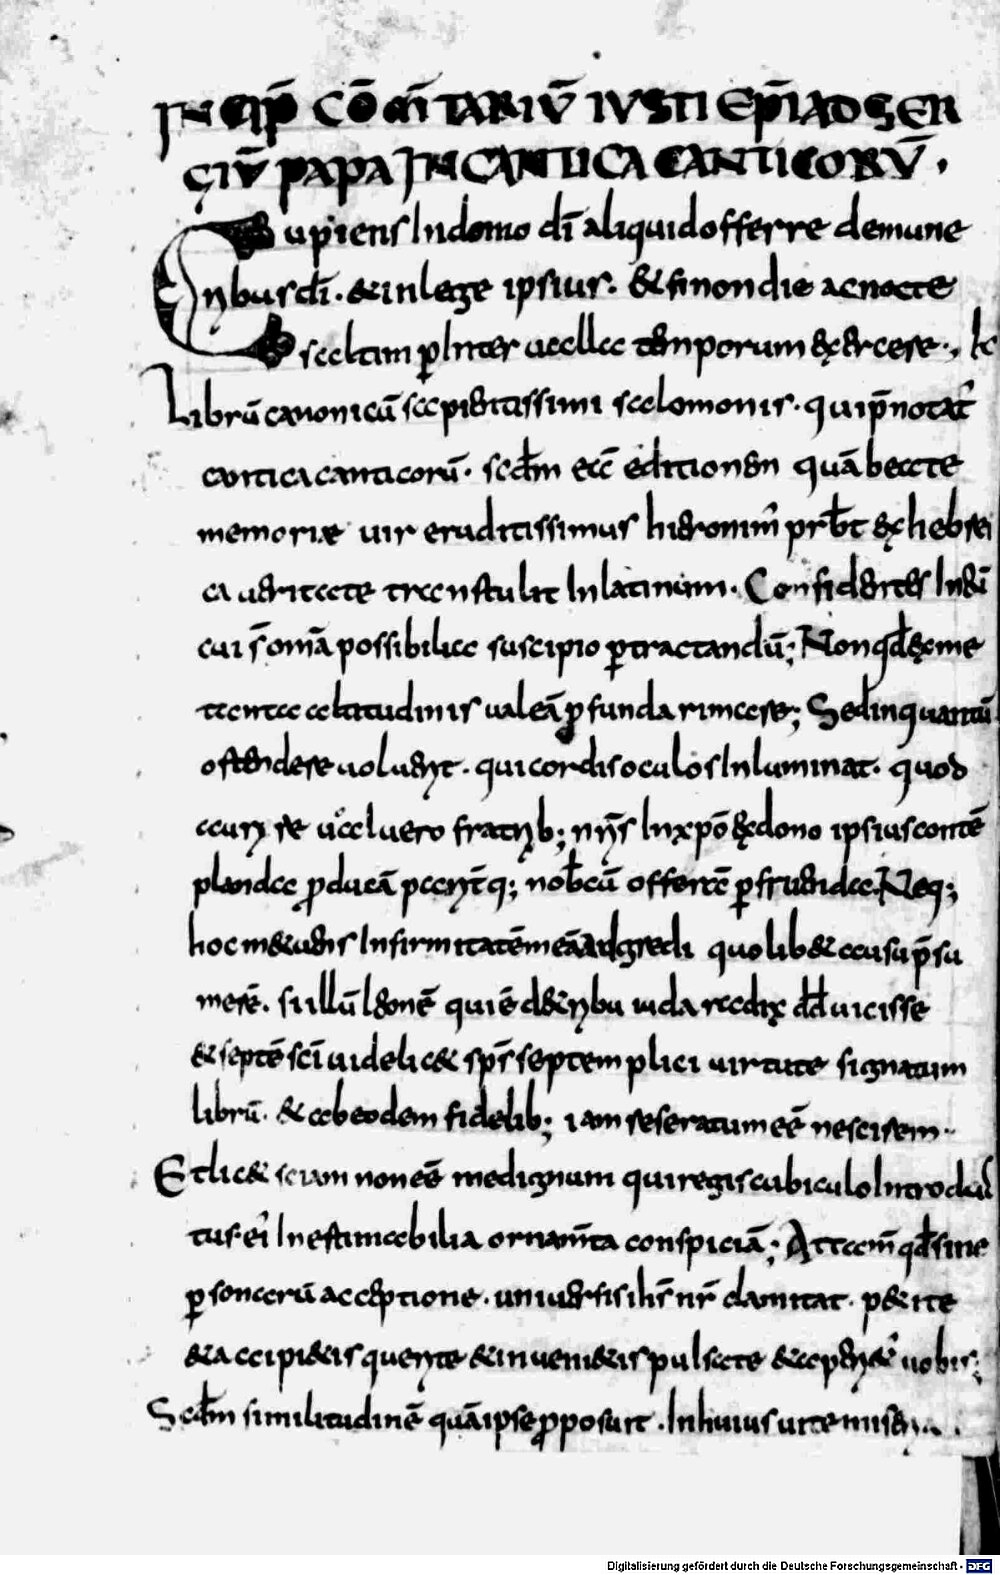 INCIP̄ COM̄TARIŪ IVSTI EPĪ AD SER
GIŪ PAPA IN CANTICA CANTICORŪ.
Cupiens In domo dī aliquid offerre de mune
ribus dī. & in lege ipsius. & si non die ac nocte
saltim ꝑ Inter ualla temporum exercere.
Librū canonicū sapientissimi salomonis. qui p̄notat᷑
cantica canticorū. scdm edictionen quā beate
memoriæ uir eruditissimus hieronim̄ prbt ex hebrei
ca ueritate transtulit In latinum. Confidentes In eū
cui s̄ om̄a possibilia suscipio ꝑtractandū; Non qđ ex me
tanta altitudinis valeā ꝓfunda rimare; Sed in quantū
ostendere voluerit. qui cordis oculos Inluminat. quod
aurire ualuero fratrib; nr̄is In xp̄o ex dono ipsius contē
planda ꝓducā paritq; nobcū offertē ꝑfruenda. Neq;
hoc m&uens Infirmitatē meā adgredi quolib& ausu p̄su
merē. si illū leonē qui ē de tribu iuda radix dd uicisse
& septē scī uidelic& sp̄s septemplici uirtute signatum
librū. & ab eodem fidelib; iam reseratum eē nescirem.
Et lic& sciam non eē me dignum qui regis cubiculo Introduc
tus. ei᷑ Inestimabilia ornam̄ta conspiciā; Attam̄ qđ sine
ꝑsonarū acceptione. uniuersis ihs̄ nr̄ clamitat. p&ite
& accipi&is querite & inueni&is pulsate & aperi&᷑ uobis;
Scdm similitudinē quā ipse ꝓposuit. In huius uite
Digitalisierung gefördert durch die Deutsche Forschungsgemeinschaft - DFG